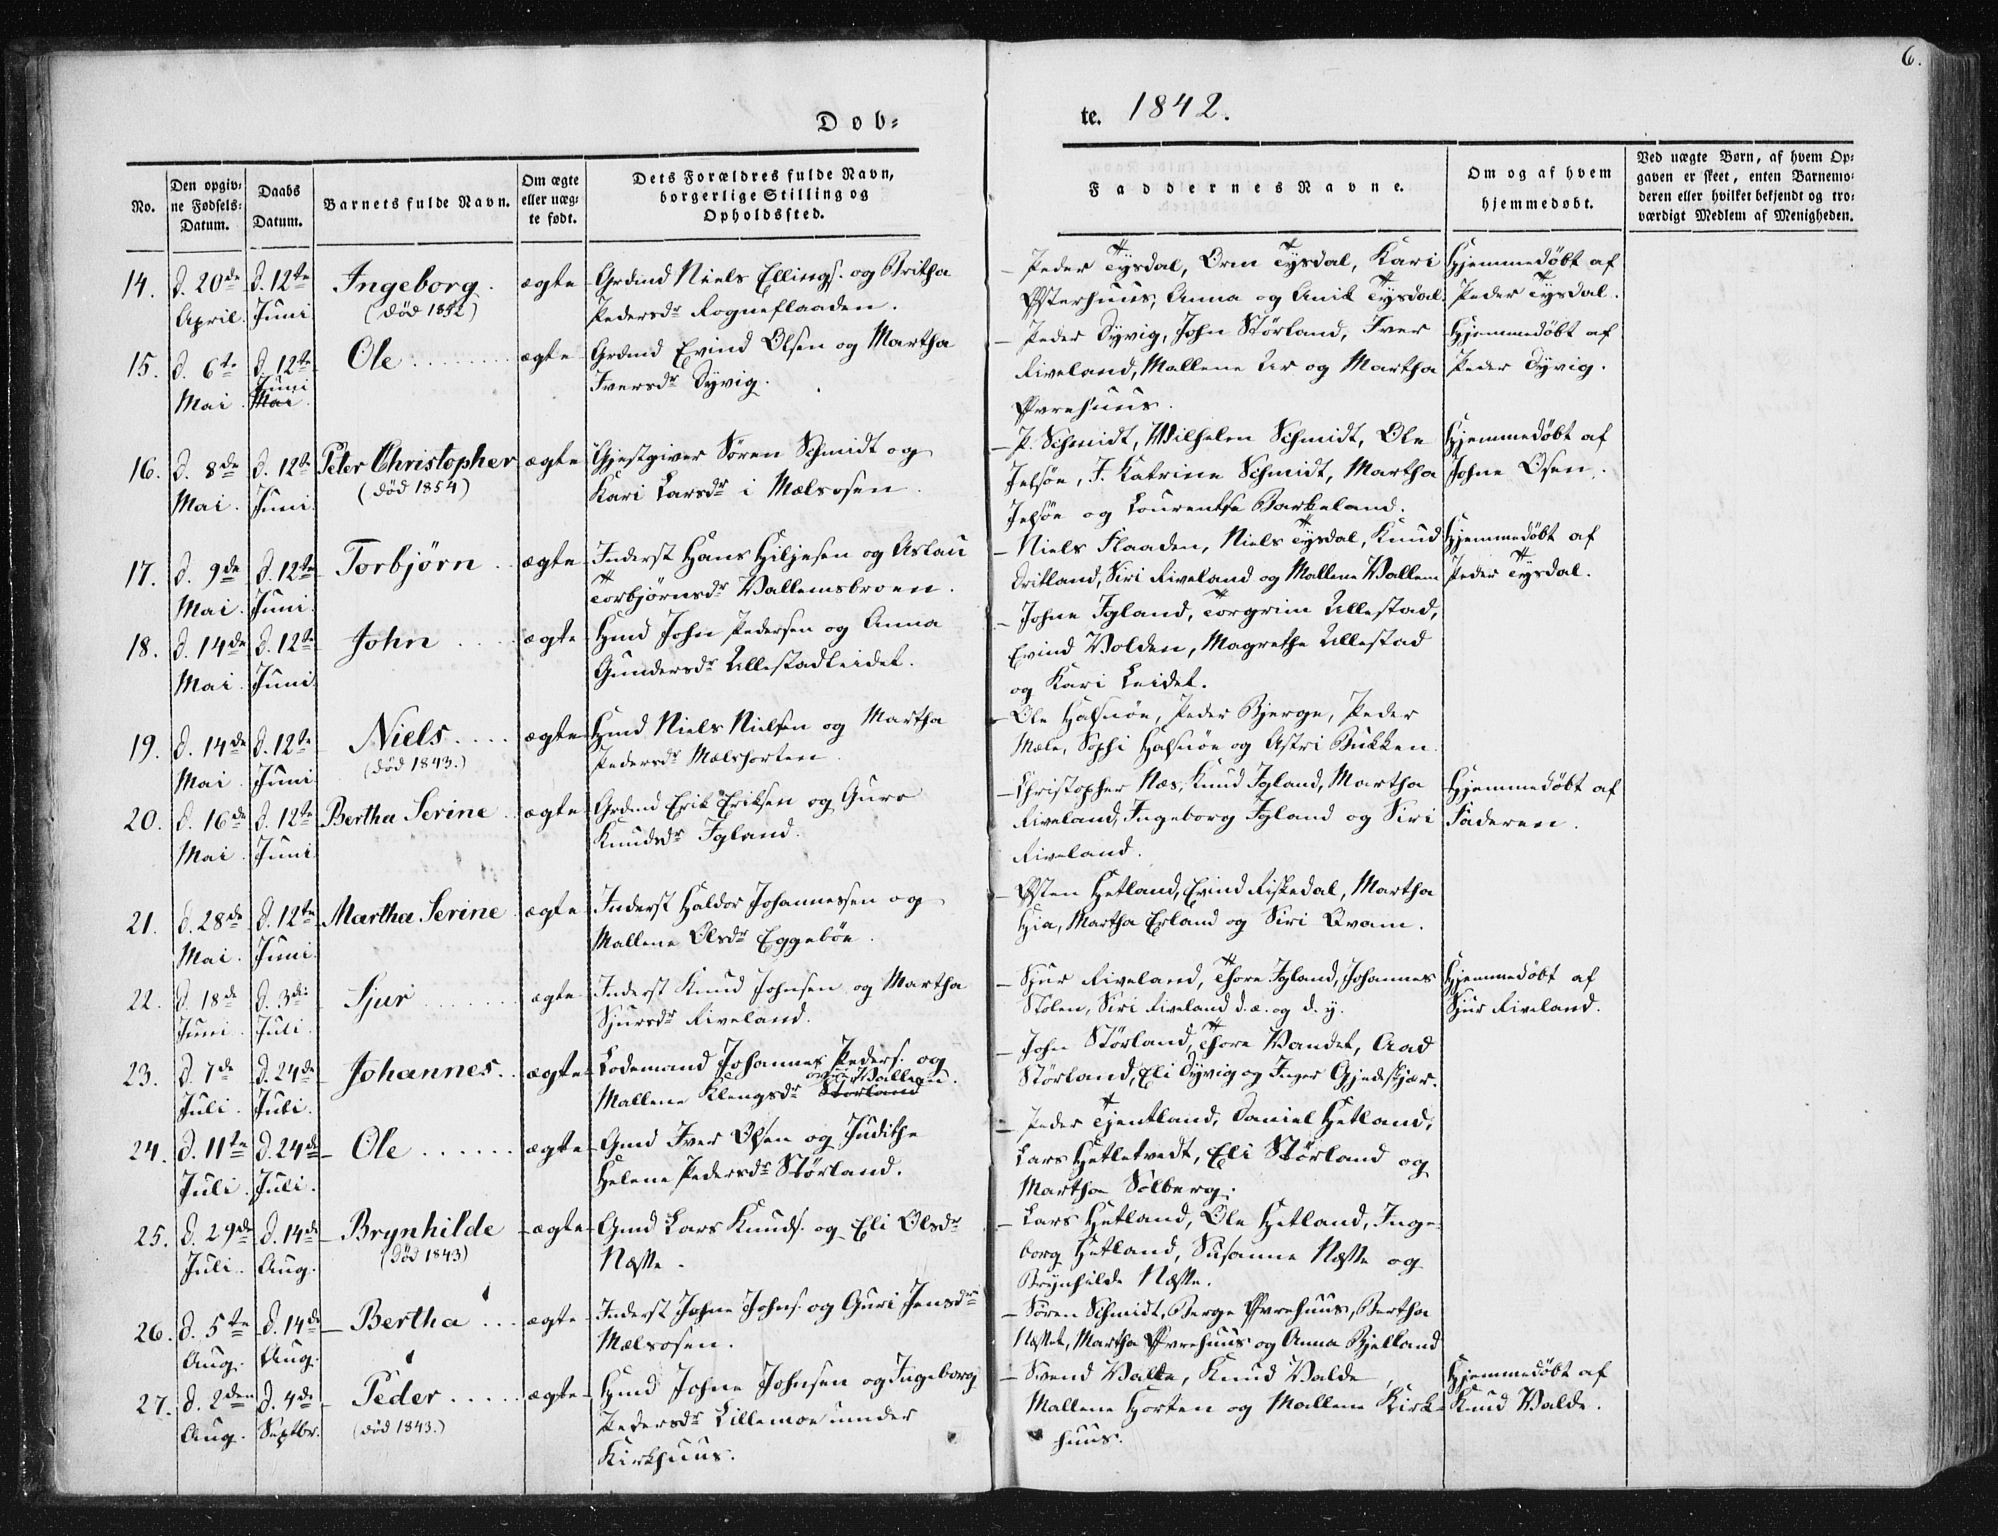 6.
Døb-
te. 1842.
No.
Den opgiv-
ne Fødsels-
Datum.
Daabs
Datum.
Barnets fulde Navn.
Om ægte
eller uæg-
te født.
Dets Forældres fulde Navn,
borgerlige Stilling og
Opholdssted.
Faddernes Navne.
Om og af hvem
hjemmedøbt.
Ved uægte Børn, af hvem Op-
gaven er skeet, enten Barnemo-
deren eller hvilket bekjendt og tro-
værdigt Medlem af Menigheden.
14. d. 20de April. d. 12te Juni Ingeborg. ægte Grdmd Niels Ellings. og Britha
(død 1842) Pedersdr Rogneflaaden.
Peder Tysdal, Orm Tysdal, Kari
Østerhuus, Anna og Tysdal.
Hjemmedøbt af
Peder Tysdal.
15. d. 6te Mai. d. 12te Juni Mai. Ole ægte Grdmd Evind Olsen og Martha
Iversdr Dyvig.
Peder Dyvig, John Størland, Iver
Riveland, Mallene Ur og Martha
Øvrehuus.
Hjemmedøbt af
Peder Dyvig.
16. d. 8de Mai. d. 12te Juni Peter Christopher ægte Gjestgiver Søren Schmidt og
(død 1854) Kari Larsdr i Mælsosen.
P. Schmidt, Wilhelm Schmidt, Ole
Jelsøe, J. Katrine Schmidt, Martha
Jelsøe og Lourentse Barkeland.
Hjemmedøbt af
Johne Osen.
17. d. 9de Mai. d. 12te Juni. Torbjørn ægte Inderst Hans Hiljesen og Aslau
Torbjørnsdr Vallemsbroen.
Niels Flaaden, Niels Tysdal, Knud
Dritland, Siri Riveland og Mallene Vallem
Hjemmedøbt af
Peder Tysdal.
18. d. 14de Mai. d. 12te Juni. John ægte Hmd John Pedersen og Anna
Gundersdr Ullestadleidet.
Johne Igland, Torgrim Ullestad,
Evind Volden, Magrethe Ullestad
og Kari Leidet.
19. d. 14de Mai. d. 12te Juni Niels ægte Hmd Niels Nielsen og Martha
(død 1843.) Pedersdr Mælshorten
Ole Halsnøe, Peder Bjerge, Peder
Mæle, Sophi Halsnøe og Astri Bukken.
20. d. 16de Mai. d. 12te Juni. Bertha Serine ægte Grdmd Erik Eriksen og Guro
Knudsdr Igland.
Christopher Næs, Knud Igland, Martha
Riveland, Ingeborg Igland og Siri
Riveland.
Hjemmedøbt af
Faderen.
21. d. 28de Mai. d. 12te Juni. Martha Serine ægte Inderst Haldor Johannessen og
Mallene Olsdr Eggebøe.
Østen Hetland, Evind Riskedal, Martha
Hia, Martha Erland og Siri Qvam.
22. d. 18de Juni. d. 3die Juli. Sjur ægte Inderst Knud Johnsen og Martha
Sjursdr Riveland.
Sjur Riveland, Thore Igland, Johannes
Stølen, Siri Riveland d. æ. og d. y.
Hjemmedøbt af
Sjur Riveland.
23. d. 7de Juli. d. 24de Juli. Johannes ægte Lodsmand Johannes Peders. og
Mallene Klengsdr Størland Vallem.
John Størland, Thore Vandet, Aad
Størland, Eli Dyvig og Inger Gjedeskjær.
24. d. 11te Juli. d. 24de Juli. Ole ægte Gmd Iver Olsen og Judithe
Helene Pedersdr Størland.
Peder Tjentland, Daniel Hetland,
Lars Hetletvedt, Eli Størland og
Martha Solberg.
25. d. 29de Juli. d. 14de Aug. Brynhilde ægte Gmd Lars Knuds. og Eli Olsdr
(død 1843) Næsse.
Lars Hetland, Ole Hetland, Inge-
borg Hetland, Susanne Næsse og
Brynhilde Næsse.
26. d. 5te Aug. d. 14de Aug. Bertha ægte Inderst Johne Johns. og Guri Jensdr
Mælsosen.
Søren Schmidt, Berge Øvrehuus, Bertha
Næsset, Martha Øvrehuus og Anna Bjelland
27. d. 2den Aug. d. 4de Septbr. Peder ægte Hmd Johne Johnsen og Ingeborg
(død 1843.) Pedersdr Lillemoe under
Kirkhuus.
Svend Valde, Knud Valde,
Mallene Horten og Mallene Kirk-
huus.
Hjemmedøbt af
Knud Valde.